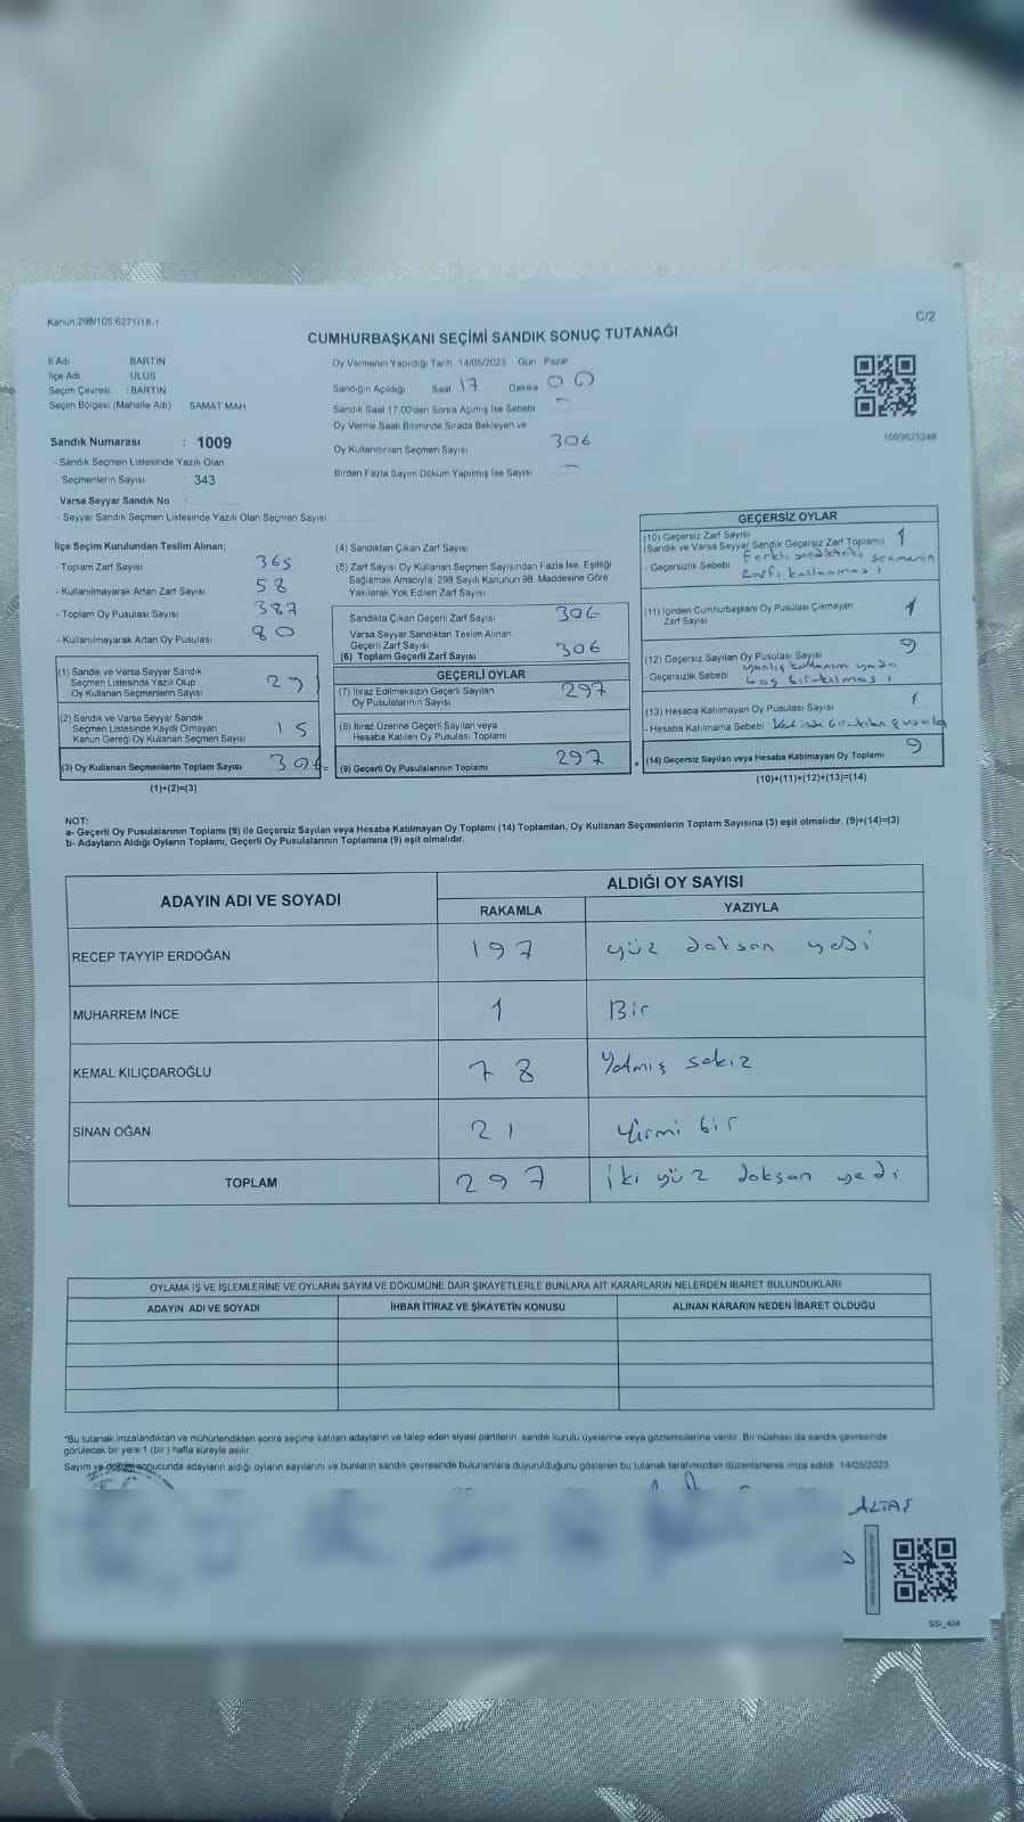 Kanun:298/105 6271/18-1
C/2
CUMHURBAŞKANI SEÇİMİ SANDIK SONUÇ TUTANAĞI
İl Adı : BARTIN
İlçe Adı : ULUS
Seçim Çevresi : BARTIN
Seçim Bölgesi (Mahalle Adı) SAMAT MAH
Sandık Numarası : 1009
- Sandık Seçmen Listesinde Yazılı Olan
Seçmenlerin Sayısı 343
Varsa Seyyar Sandık No :
- Seyyar Sandık Seçmen Listesinde Yazılı Olan Seçmen Sayısı
Oy Vermenin Yapıldığı Tarih 14/05/2023 Gün Pazar
Sandığın Açıldığı Saat 17 Dakika 00
Sandık Saat 17.00'den Sonra Açılmış İse Sebebi -
Oy Verme Saati Bitiminde Sırada Bekleyen ve
Oy Kullandırılan Seçmen Sayısı 306
Birden Fazla Sayım Döküm Yapılmış İse Sayısı -
1009625248
İlçe Seçim Kurulundan Teslim Alınan;
- Toplam Zarf Sayısı 365
- Kullanılmayarak Artan Zarf Sayısı 58
- Toplam Oy Pusulası Sayısı 387
- Kullanılmayarak Artan Oy Pusulası 80
(1) Sandık ve Varsa Seyyar Sandık
Seçmen Listesinde Yazılı Olup
Oy Kullanan Seçmenlerin Sayısı
(2) Sandık ve Varsa Seyyar Sandık
Seçmen Listesinde Kayıtlı Olmayan
Kanun Gereği Oy Kullanan Seçmen Sayısı 15
(3) Oy Kullanan Seçmenlerin Toplam Sayısı 306 =
(1)+(2)=(3)
(4) Sandıktan Çıkan Zarf Sayısı
(5) Zarf Sayısı Oy Kullanan Seçmen Sayısından Fazla İse, Eşitliği
Sağlamak Amacıyla, 298 Sayılı Kanunun 98. Maddesine Göre
Yakılarak Yok Edilen Zarf Sayısı
Sandıkta Çıkan Geçerli Zarf Sayısı 306
Varsa Seyyar Sandıktan Teslim Alınan
Geçerli Zarf Sayısı
(6) Toplam Geçerli Zarf Sayısı 306
GEÇERLİ OYLAR
(7) İtiraz Edilmeksizin Geçerli Sayılan
Oy Pusulalarının Sayısı 297
(8) İtiraz Üzerine Geçerli Sayılan veya
Hesaba Katılan Oy Pusulası Toplamı
(9) Geçerli Oy Pusulalarının Toplamı 297
GEÇERSİZ OYLAR
(10) Geçersiz Zarf Sayısı
(Sandık ve Varsa Seyyar Sandık Geçersiz Zarf Toplamı) 1
- Geçersizlik Sebebi Farklı seçmenin
zarfı kullanması
(11) İçinden Cumhurbaşkanı Oy Pusulası Çıkmayan
Zarf Sayısı 1
(12) Geçersiz Sayılan Oy Pusulası Sayısı 9
Geçersizlik Sebebi yanlış kullanım yada
boş bırakılması
(13) Hesaba Katılmayan Oy Pusulası Sayısı 1
- Hesaba Katılmama Sebebi
(14) Geçersiz Sayılan veya Hesaba Katılmayan Oy Toplamı 9
(10)+(11)+(12)+(13)=(14)
NOT:
a- Geçerli Oy Pusulalarının Toplamı (9) ile Geçersiz Sayılan veya Hesaba Katılmayan Oy Toplamı (14) Toplamları, Oy Kullanan Seçmenlerin Toplam Sayısına (3) eşit olmalıdır. (9)+(14)=(3)
b- Adayların Aldığı Oyların Toplamı, Geçerli Oy Pusulalarının Toplamına (9) eşit olmalıdır.
ADAYIN ADI VE SOYADI ALDIĞI OY SAYISI
RAKAMLA YAZIYLA
RECEP TAYYİP ERDOĞAN 197 yüz doksan yedi
MUHARREM İNCE 1 Bir
KEMAL KILIÇDAROĞLU 78 Yetmiş sekiz
SİNAN OĞAN 21 Yirmi bir
TOPLAM 297 iki yüz doksan yedi
OYLAMA İŞ VE İŞLEMLERİNE VE OYLARIN SAYIM VE DÖKÜMÜNE DAİR ŞİKAYETLERLE BUNLARA AİT KARARLARIN NELERDEN İBARET BULUNDUKLARI
ADAYIN ADI VE SOYADI İHBAR İTİRAZ VE ŞİKAYETİN KONUSU ALINAN KARARIN NEDEN İBARET OLDUĞU
*Bu tutanak imzalandıktan ve mühürlendikten sonra seçime katılan adayların ve talep eden siyasi partilerin sandık kurulu üyelerine veya gözlemcilerine verilir. Bir nüshası da sandık çevresinde
görülecek bir yere 1 (bir) hafta süreyle asılır.
Sayım ve döküm sonucunda adayların aldığı oyların sayılarını ve bunların sandık çevresinde bulunanlara duyurulduğunu gösteren bu tutanak tarafımızdan düzenlenerek imza edildi. 14/05/2023
ALTAŞ
SSI_404